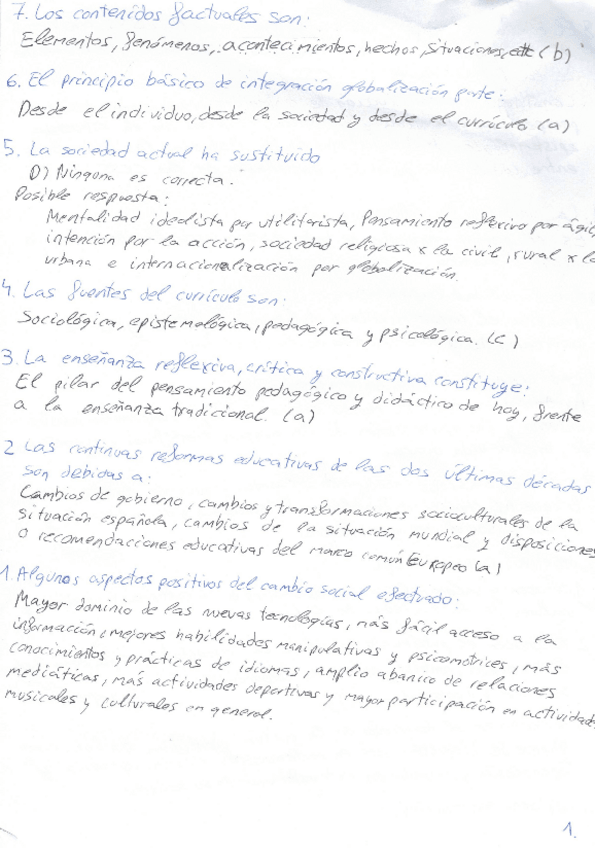 7. Los contenidos factuales son:
Elementos, fenómenos, acontecimientos, hechos, situaciones, etc (b)
6. El principio básico de integración globalización parte:
Desde el individuo, desde la sociedad y desde el currículo (a)
5. La sociedad actual ha sustituido
D) Ninguna es correcta.
Posible respuesta:
Mentalidad idealista por utilitarista, Pensamiento reflexivo por ágil,
intención por la acción, sociedad religiosa x la civil, rural x la
urbana e internacionalización por globalización.
4. Las fuentes del currículo son:
Sociológica, epistemológica, pedagógica y psicológica. (c)
3. La enseñanza reflexiva, crítica y constructiva constituye:
El pilar del pensamiento pedagógico y didáctico de hoy, frente
a la enseñanza tradicional. (a)
2 Las continuas reformas educativas de las dos últimas décadas
son debidas a:
Cambios de gobierno, cambios y transformaciones socioculturales de la
situación española, cambios de la situación mundial y disposiciones
o recomendaciones educativas del marco común Europeo (a)
1. Algunos aspectos positivos del cambio social efectuado:
Mayor dominio de las nuevas tecnologías, más fácil acceso a la
información, mejores habilidades manipulativas y psicomotrices, más
conocimientos y prácticas de idiomas, amplio abanico de relaciones
mediáticas, más actividades deportivas y mayor participación en actividades
musicales y culturales en general.
1.